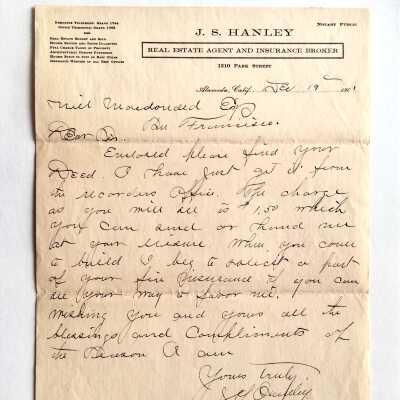 RESIDENCE TELEPHONE: GRAND 1764
OFFICE TELEPHONE: GRAND
REAL ESTATE BOUGHT AND SOLD
HOUSES RENTED AND RENTS COLLECTED
FULL CHARGE TAKEN OF PROPERTY
HOUSES BUILT TO SUIT ON EASY TERMS
INSURANCE WRITTEN IN ALL
NOTARY PUBLIC
J. S. HANLEY
REAL ESTATE AGENT AND INSURANCE BROKER
1510 PARK STREET
Alameda, Calif., Dec 19 190
Neil Macdonald Esq
San Francisco.
Dear Sir.
Enclosed please find your
Deed. I have just got it from
the recorders Office. The charge
as you will see is $1.50 which
you can send or hand me
at your leisure When you come
to build I beg to solicit a part
of your fire insurance if you can
see your way to favor me.
Wishing You and Yours all the
blessings and Compliments of
the Season I am
Yours truly
J S Hanley